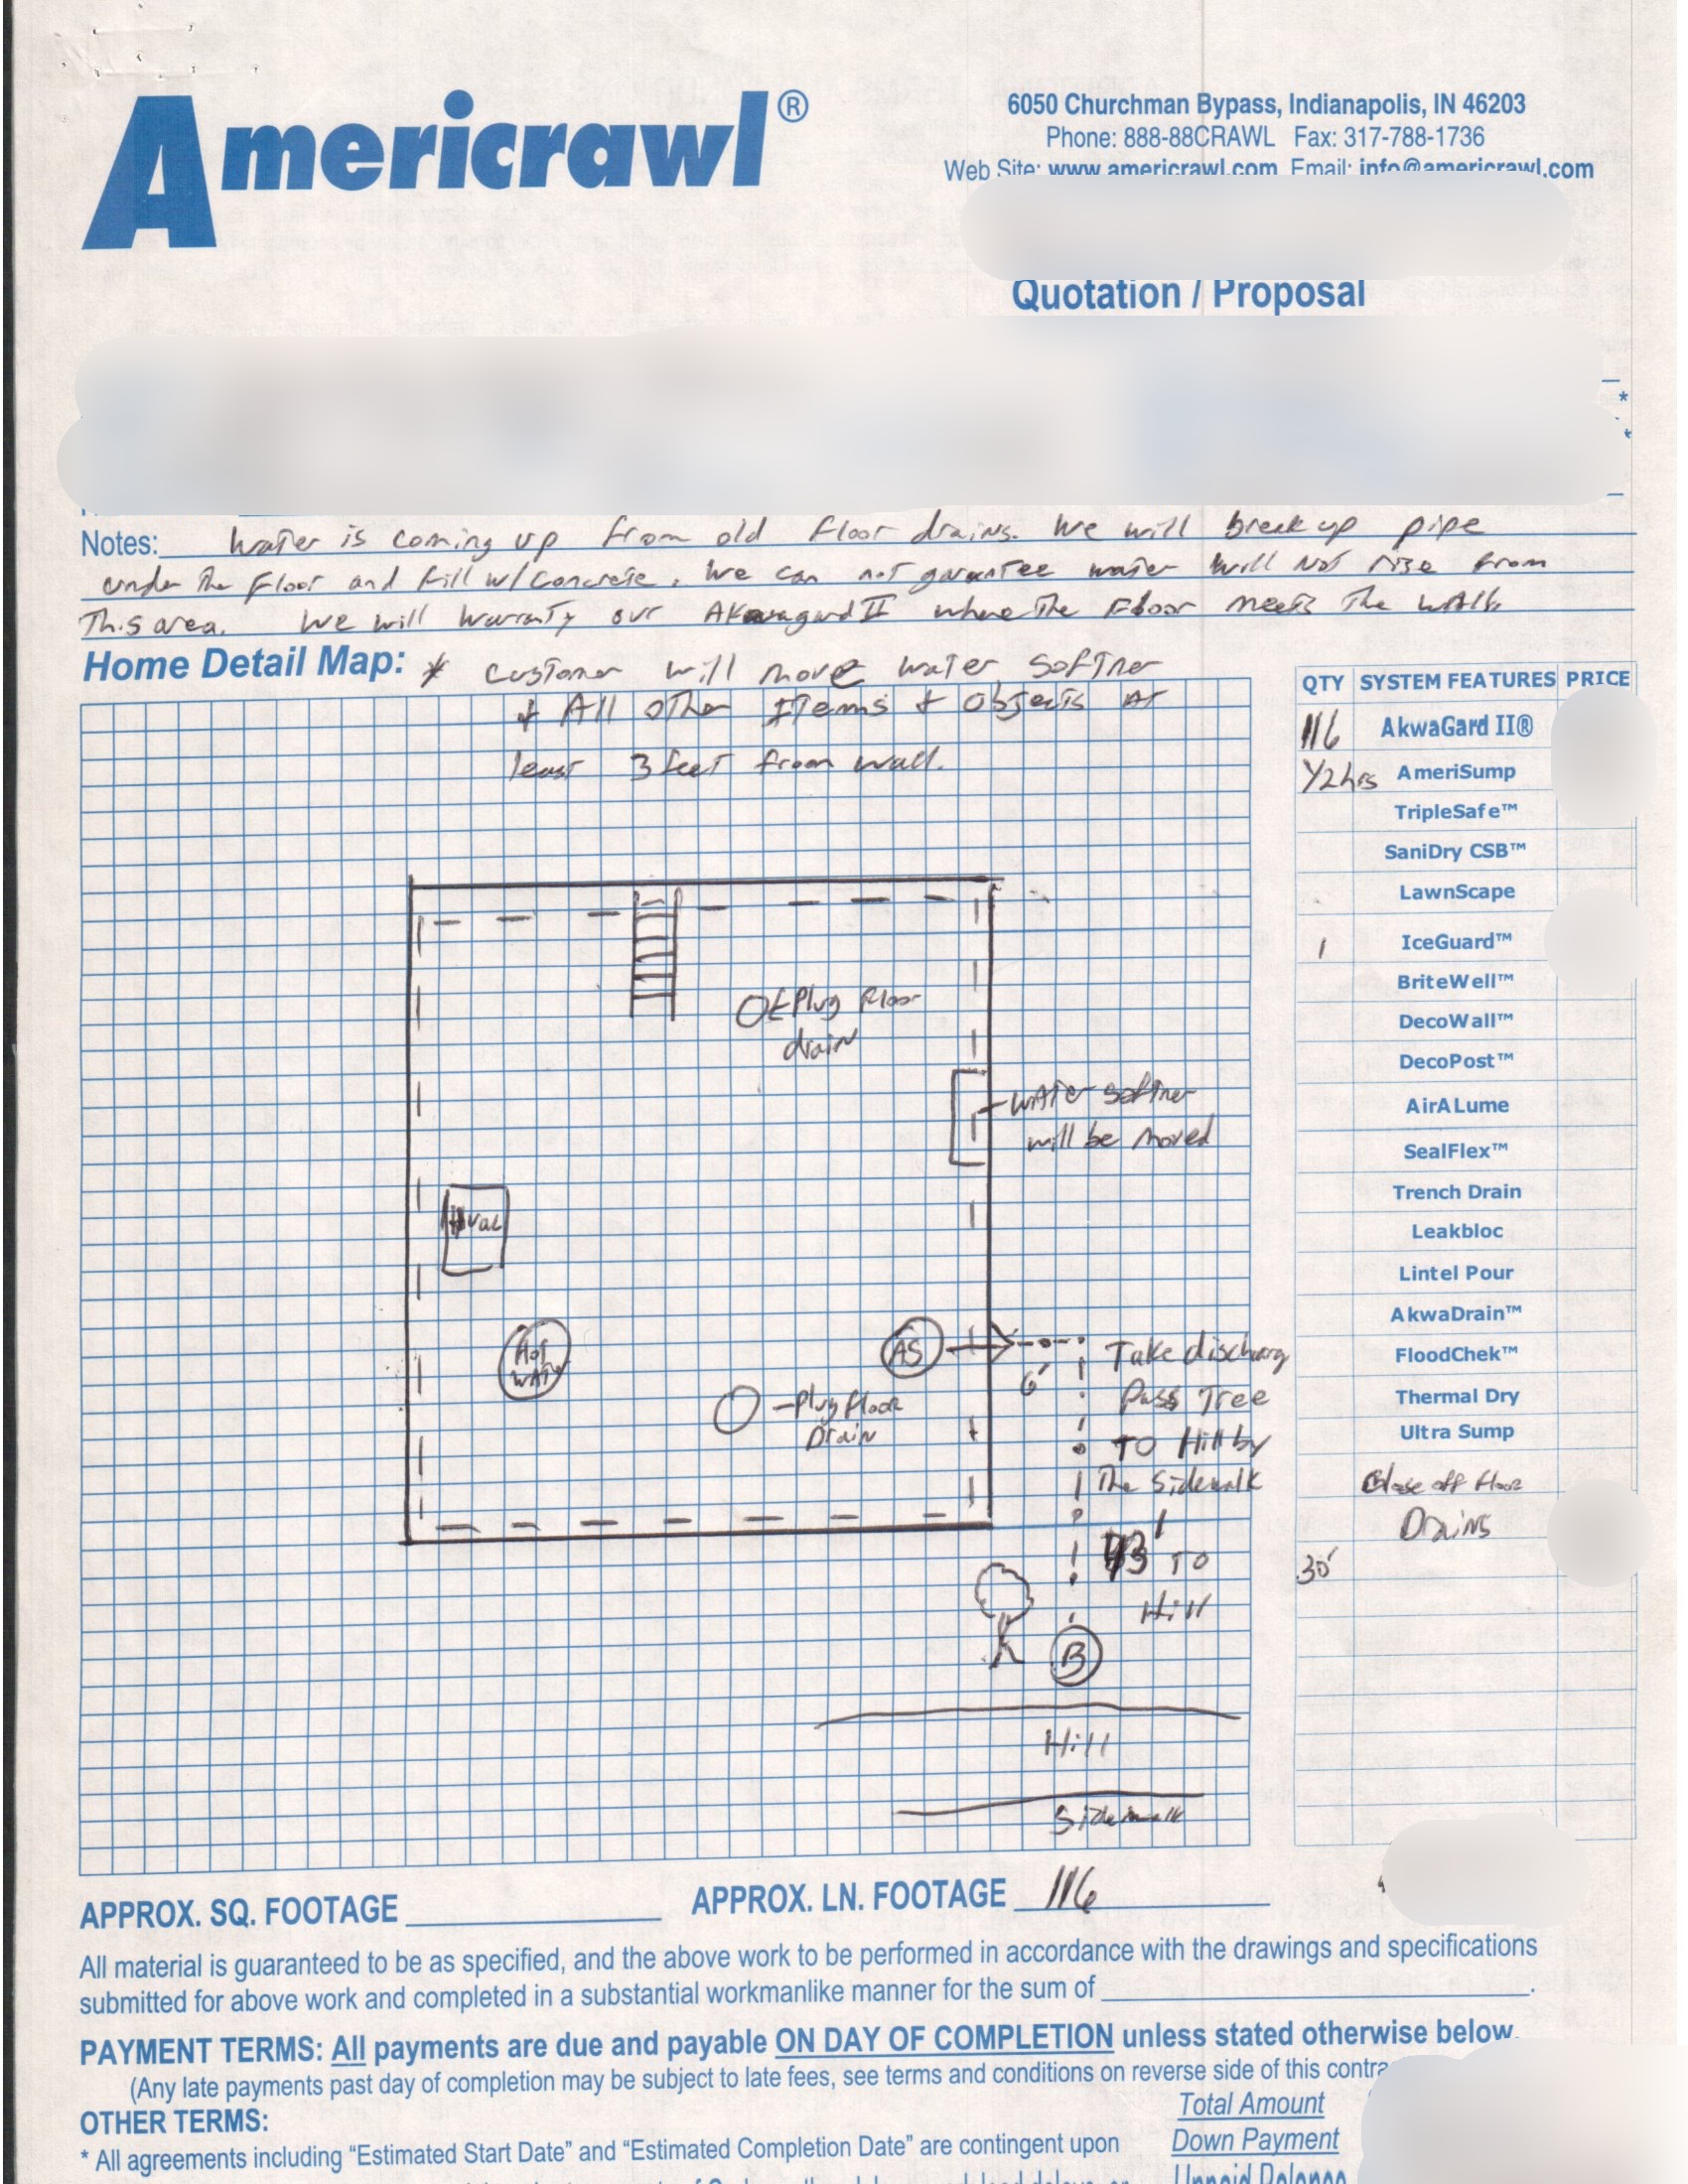 Americrawl®
6050 Churchman Bypass, Indianapolis, IN 46203
Phone: 888-88CRAWL Fax: 317-788-1736
Web Site: www.americrawl.com Email: info@americrawl.com
Quotation / Proposal
Notes: Water is coming up from old floor drains. We will break up pipe
under The Floor and fill w/ Concrete. We can not garantee water will Not rise from
This area. We will warranty our Akwagard II where The Floor meets The wall.
Home Detail Map: * customer will move water softner
+ All other Items + Objects AT
least 3 feet from wall.
QTY SYSTEM FEATURES PRICE
116 AkwaGard II®
1/2 hrs AmeriSump
TripleSafe™
SaniDry CSB™
LawnScape
1 IceGuard™
BriteWell™
DecoWall™
DecoPost™
AirALume
SealFlex™
Trench Drain
Leakbloc
Lintel Pour
AkwaDrain™
FloodChek™
Thermal Dry
Ultra Sump
Close off floor
Drains
30'
Plug floor
drain
water softner
will be moved
Hvac
Hot
water
AS
6'
Plug floor
Drain
Take discharg
Pass Tree
TO Hill by
The Sidewalk
TO
Hill
B
Hill
Sidewalk
APPROX. SQ. FOOTAGE
APPROX. LN. FOOTAGE 116
All material is guaranteed to be as specified, and the above work to be performed in accordance with the drawings and specifications
submitted for above work and completed in a substantial workmanlike manner for the sum of
PAYMENT TERMS: All payments are due and payable ON DAY OF COMPLETION unless stated otherwise below.
(Any late payments past day of completion may be subject to late fees, see terms and conditions on reverse side of this
OTHER TERMS:
* All agreements including “Estimated Start Date” and “Estimated Completion Date” are contingent upon
Total Amount
Down Payment
Unpaid Balance